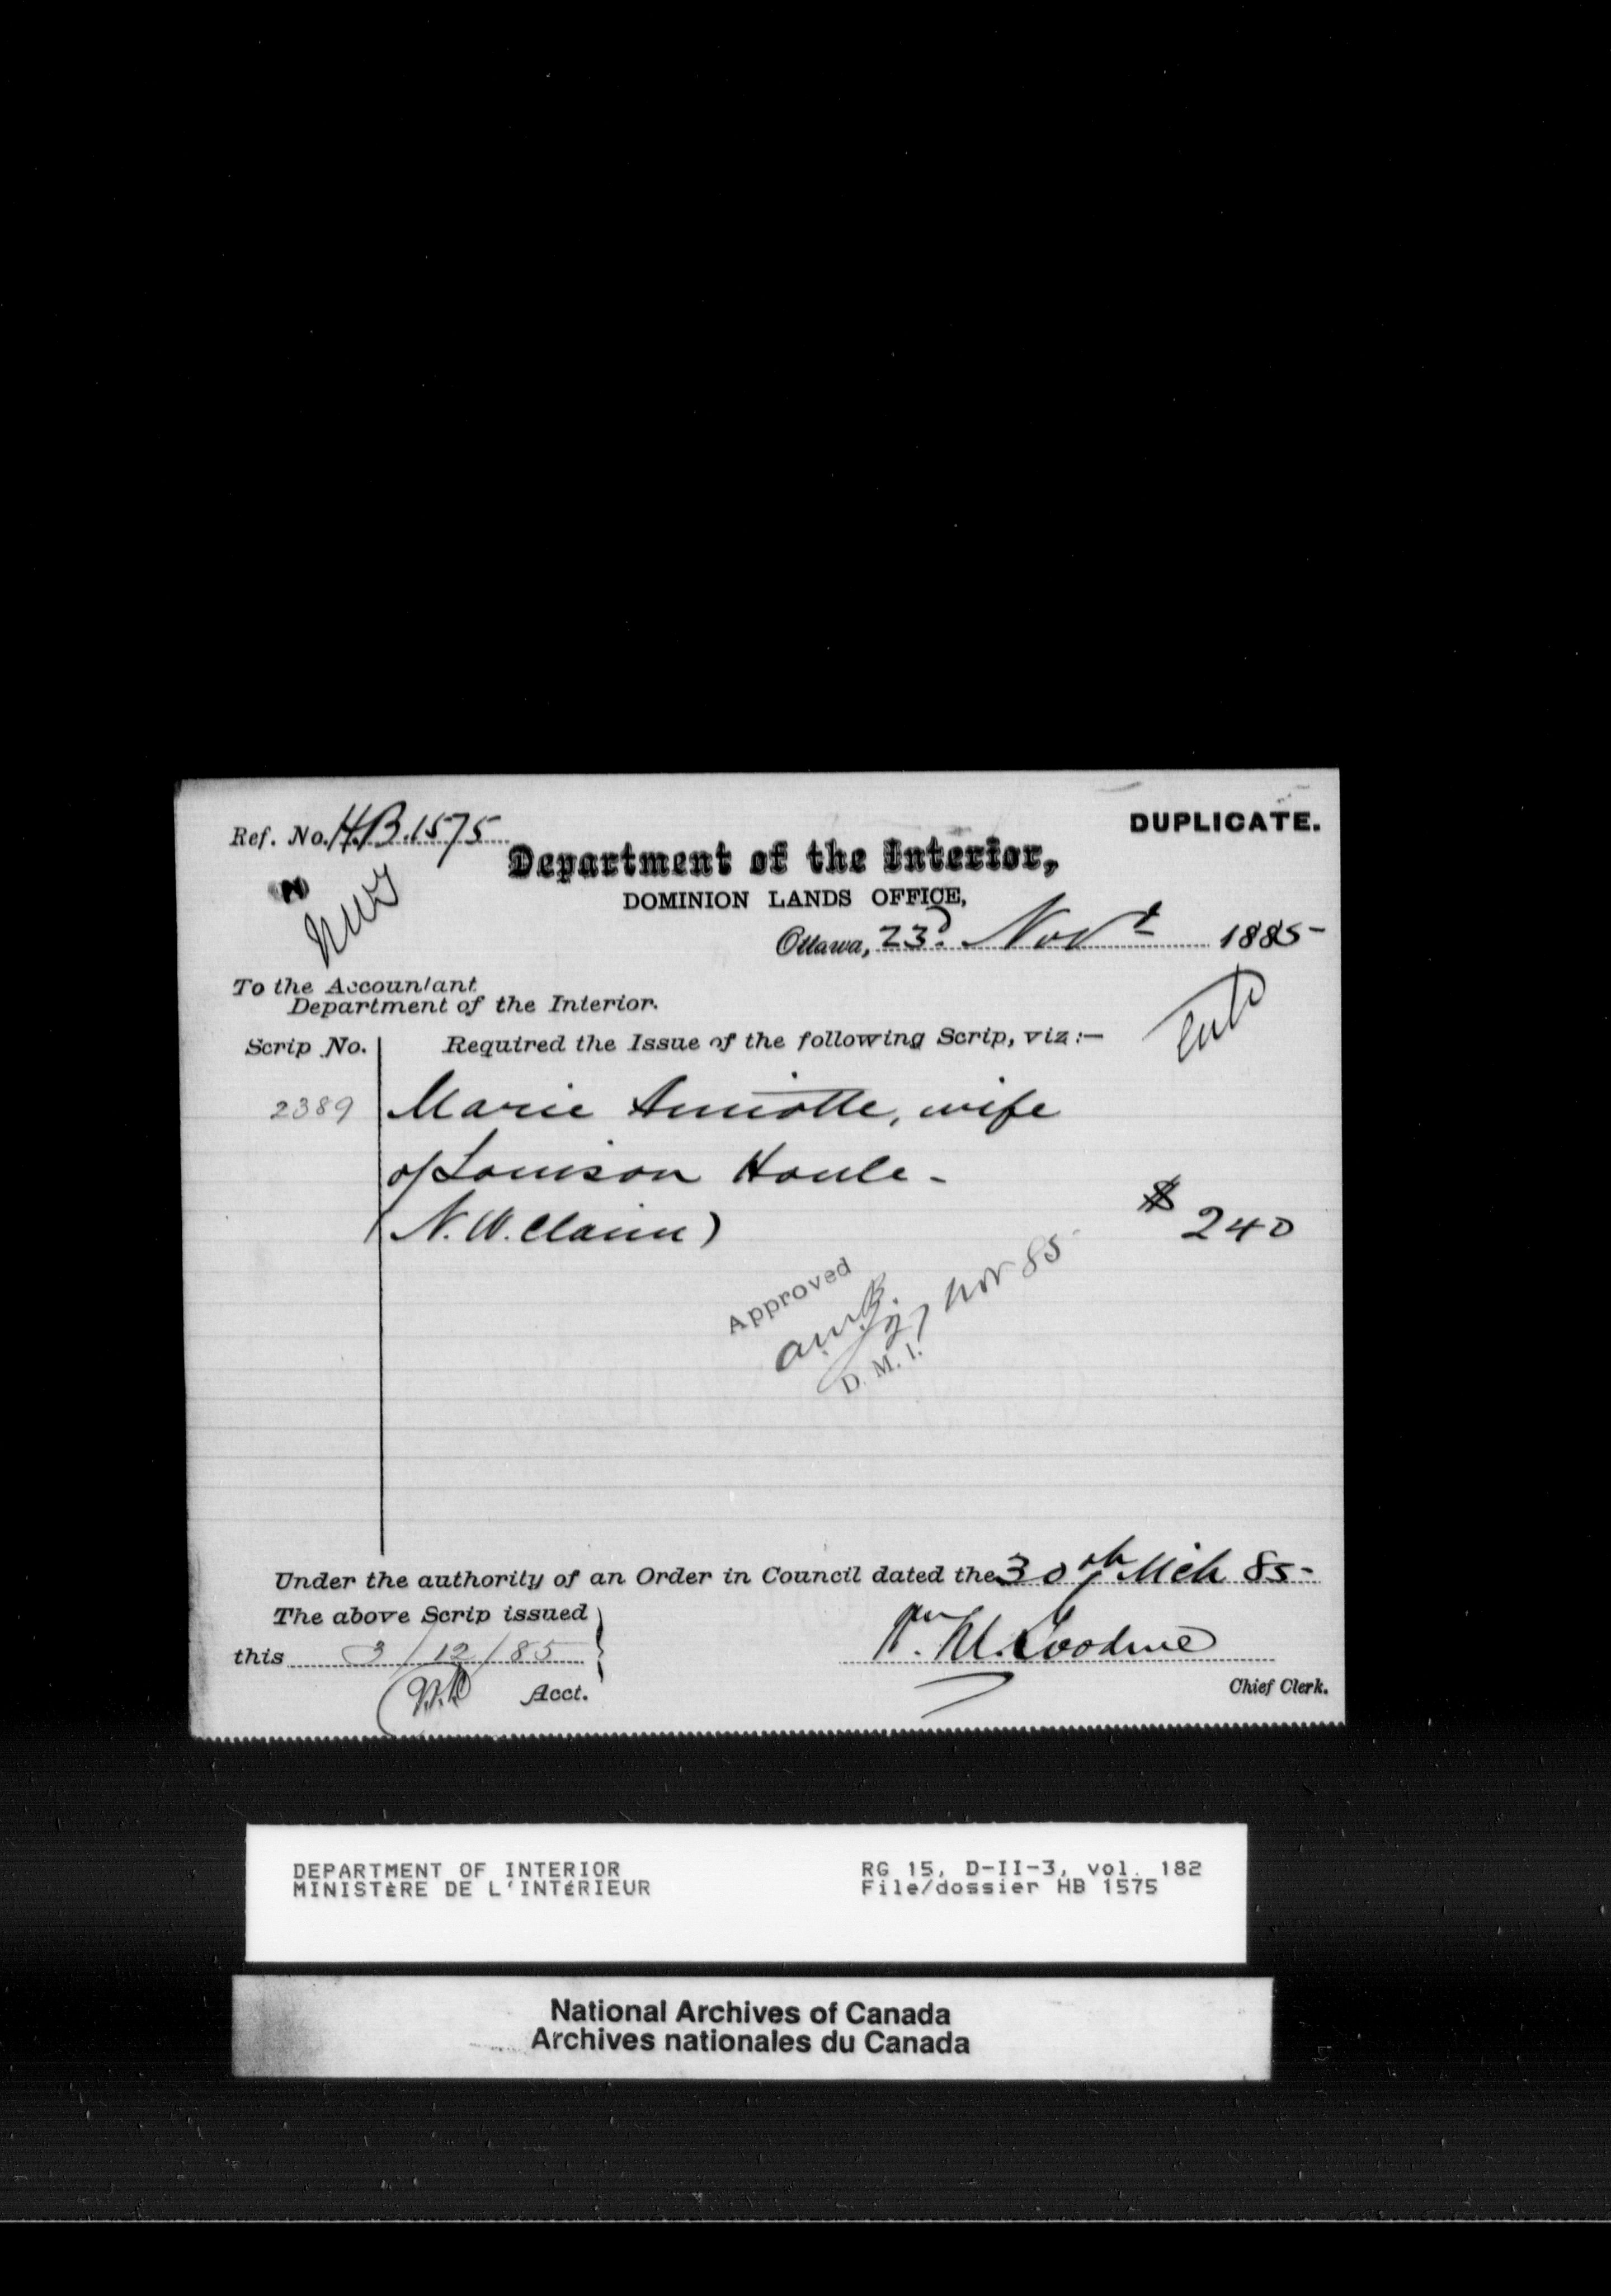 Ref. No. H.B. 1575
DUPLICATE.
Department of the Interior,
DOMINION LANDS OFFICE,
Ottawa, 23d. Novr 1885-
To the Accountant
Department of the Interior.
Scrip No. Required the Issue of the following Scrip, viz:—
2389 Marie Amiotte, wife
of Louison Houle -
(N.W. Claim)
$ 240
Approved
27 Nov 85
D. M. I.
Under the authority of an Order in Council dated the 30th Mch 85-
The above Scrip issued
this 3/12/85
Acct.
Chief Clerk.
DEPARTMENT OF INTERIOR
MINISTÈRE DE L'INTÉRIEUR
RG 15, D-II-3, vol. 182
File/dossier HB 1575
National Archives of Canada
Archives nationales du Canada